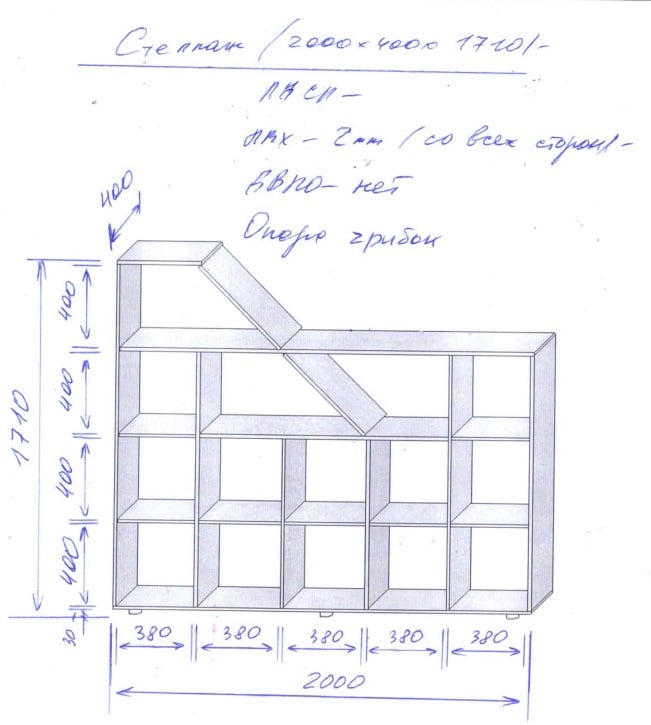 Стеллаж /2000х400х1710/-
ЛДСП -
ПВХ - 2мм /со всех сторон/-
ДВПО- нет
Опора грибок
400
400
400
400
400
1710
30
380 380 380 380 380
2000